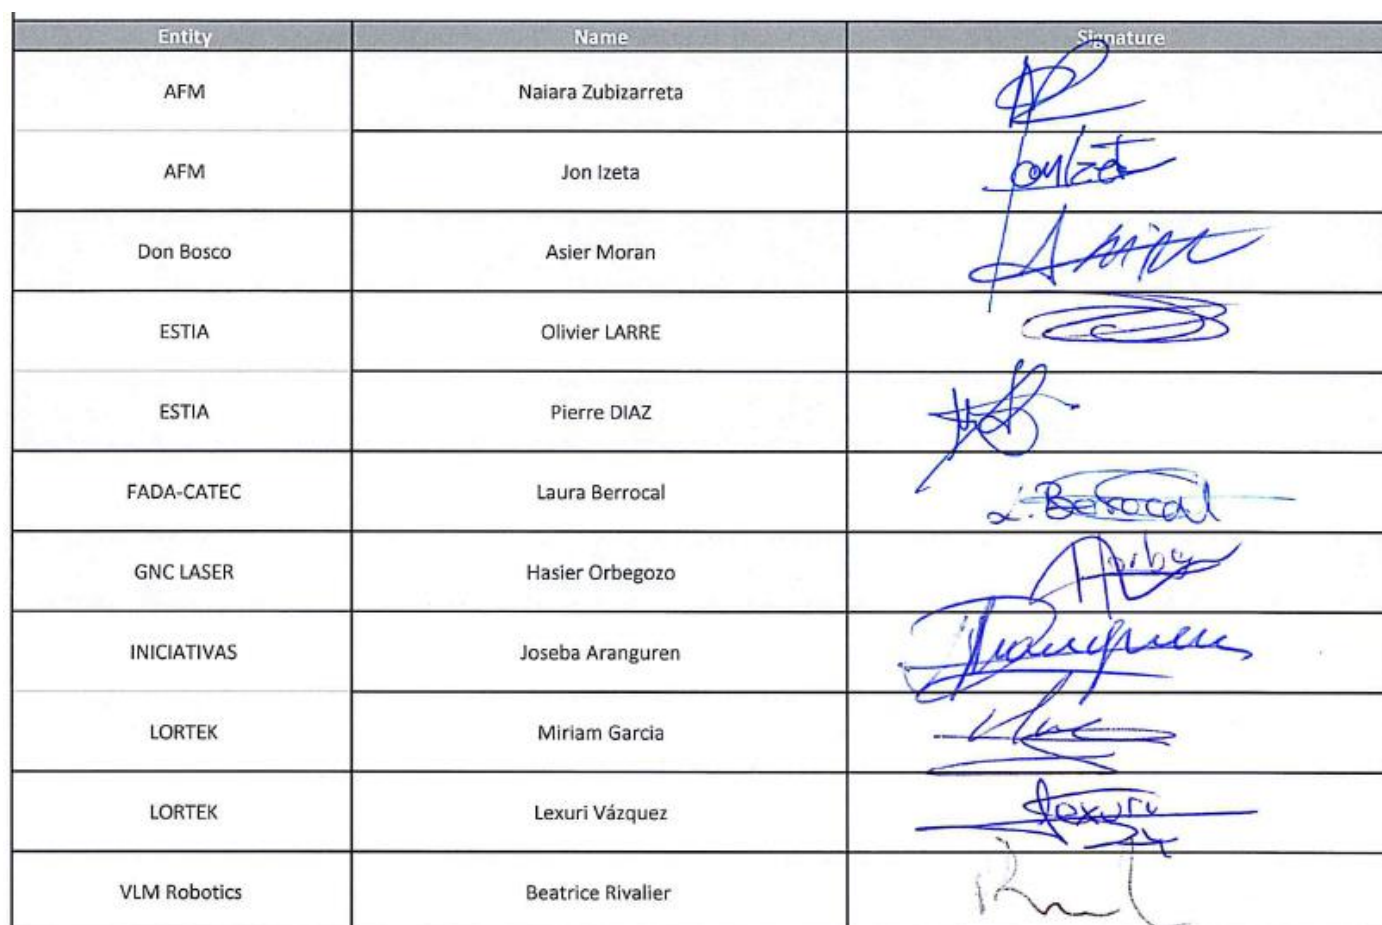 Entity Name Signature
AFM Naiara Zubizarreta
AFM Jon Izeta
Don Bosco Asier Moran
ESTIA Olivier LARRE
ESTIA Pierre DIAZ
FADA-CATEC Laura Berrocal L. Berrocal
GNC LASER Hasier Orbegozo
INICIATIVAS Joseba Aranguren
LORTEK Miriam Garcia
LORTEK Lexuri Vázquez Lexuri
VLM Robotics Beatrice Rivalier